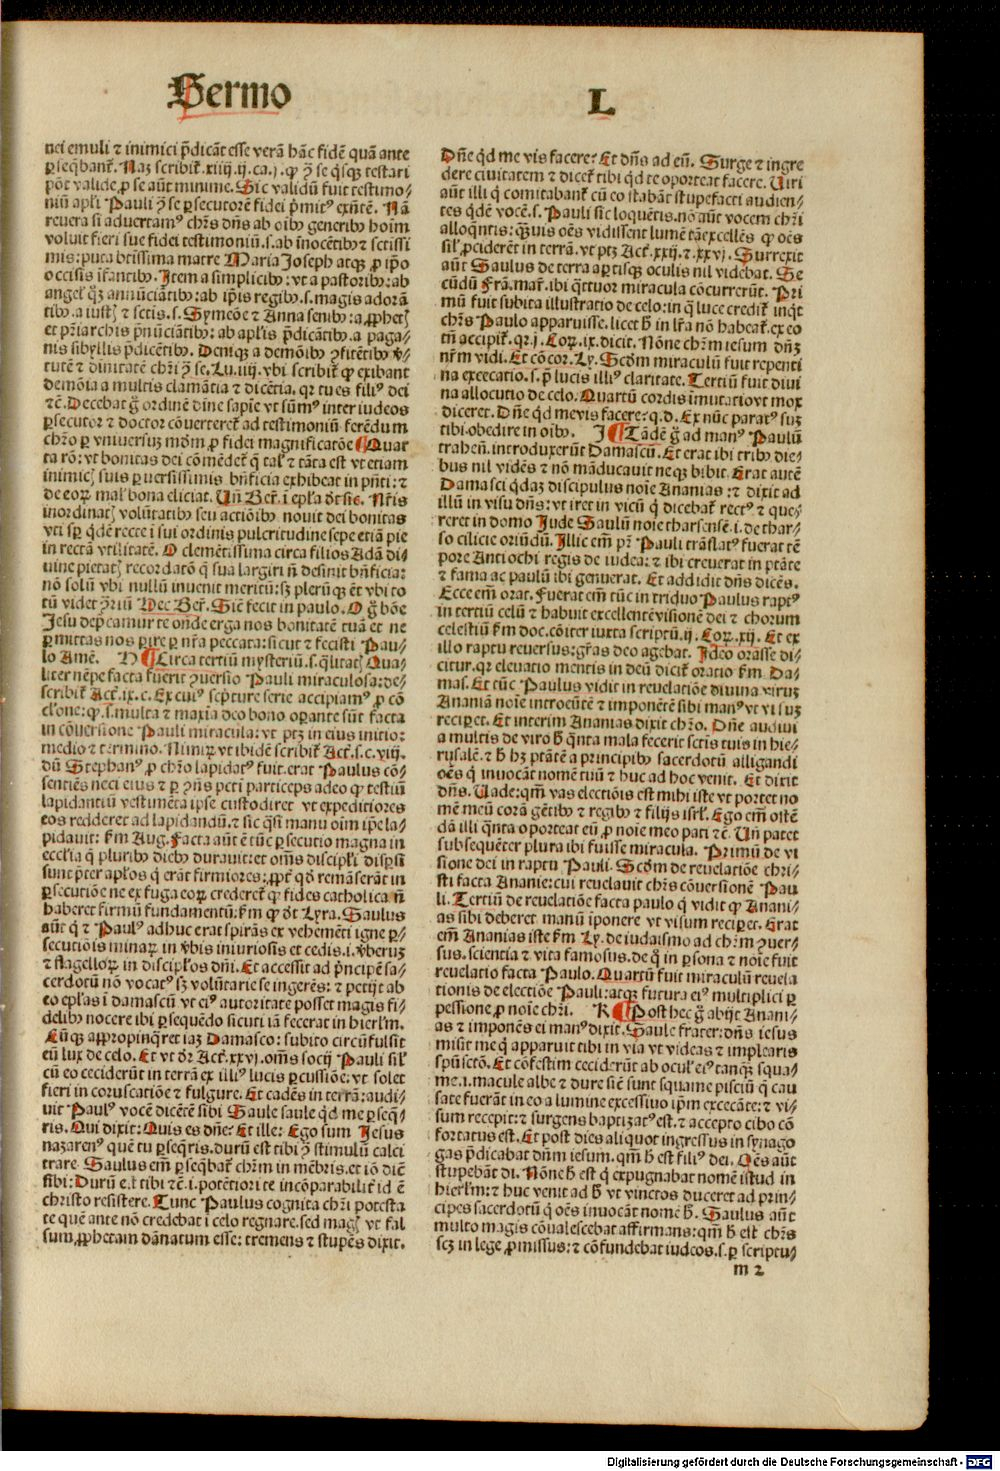 Sermo
L
nei emuli ⁊ inimici p̃dicãt esse verã hãc fidẽ quã ante
ꝑseq̃bant᷑. Naȝ scribit᷑.xiiij.ij.ca.j.ꝙ ꝯ̃ se q̃sqȝ testari
põt valide, ꝓ se aũt minime. Sic validũ fuit testimo⸗
niũ apl̃i Pauli ꝯ̃ se ꝑsecutorẽ fidei p̃mitꝰ exñtẽ. Nã
reuera si aduertamꝰ chr̃s dñs ab oĩbꝰ generibꝰ hoĩm
voluit fieri sue fidei testimoniũ.s.ab ĩnocẽtibꝰ ⁊ sctissi
mis: puta btissima matre Maria Joseph atqȝ ꝓ ip̃o
occisis ĩfantibꝰ. Item a simplicibꝰ: vt a pastoribꝰ: ab
angel᷑ q̃ȝ annũciãtibꝰ: ab ip̃is regibꝰ.s.magis adorã
tibꝰ. a iustꝭ ⁊ sctis.s. Symeõe ⁊ Anna senibꝰ: a ꝓphetꝭ
et pr̃iarchis p̃nũciãtibꝰ: ab apl̃is p̃dicãtibꝰ. a paga⸗
nis sibyllis p̃dicẽtibꝰ. Deniqȝ a demõibꝰ ꝯfitẽtibꝰ ṽ⸗
tutẽ ⁊ diuinitatẽ chr̃i ꝯ̃ se. Lu.iiij.vbi scribit᷑ ꝙ exibant
demõia a multis clamãtia ⁊ dicẽtia. qr tu es filiꝰ dei
⁊c̃. Decebat g̃ ordinẽ diuine sapiẽ vt sũmꝰ inter iudeos
ꝑsecutor ⁊ doctor cõuerteret᷑ ad testimoniũ ferẽdum
chr̃o ꝑ vniuersuȝ mũdũ ꝓ fidei magnificatõe ¶ Quar
ta rõ: vt bonitas dei cõmẽdet᷑ q̃ tal᷑ ⁊ tãta est vt etiam
inimicꝭ suis ꝑuersissimis bñficia exhibeat in p̃nti: ⁊
de eoꝝ mal᷑ bona eliciat. Uñ Ber̃. ĩ epl̃a q̃dã sic. Nr̃is
inordinatꝭ volũtatibꝰ seu actiõibꝰ nouit dei bonitas
vti sꝑ q̃dẽ recte ĩ sui ordinis pulcritudinẽ sepe etiã pie
in rectã vtilitatẽ. O clemẽtissima circa filios Adã di⸗
uine pietatꝭ recordatõ q̃ sua largiri nõ desinit bñficia:
nõ solũ vbi nullũ inuenit meritũ: sȝ plerũqȝ ẽt vbi to
tũ videt ꝯ̃riũ Hec Ber̃. Sic̃ fecit in paulo. O g̃ bõe
Jesu dep̃camur te ondẽ erga nos bonitatẽ tuã et ne
ꝑmittas nos ꝑire ꝑ nr̃a peccata: sicut ⁊ fecisti Pau⸗
lo Amẽ. H ¶ Circa tertiũ mysteriũ.s.q̃litatꝭ Qua⸗
liter nẽpe facta fuerit ꝯuersio Pauli miraculosa: de⸗
scribit᷑ Act᷑.ix.c. Ex cuiꝰ scp̃ture serie accipiamꝰ ꝓ cõ
cl̃one: ꝙ.s.multa ⁊ maxĩa deo bono oꝑante sũt facta
in cõuersione Pauli miracula: vt ptȝ in eius initio:
medio ⁊ termino. Nimiꝝ vt ibidẽ scribit᷑ Act᷑.s.c.viij.
dũ Stephanꝰ ꝓ chr̃o lapidatꝰ fuit. erat Paulus cõ⸗
sentiẽs neci eius ⁊ ꝑ ꝯñs peti particeps adeo ꝙ testiũ
lapidantiũ vestimẽta ipse custodiret vt expeditiores
eos redderet ad lapidandũ. ⁊ sic q̃si manu oĩm ip̃e la⸗
pidauit: f̃m Aug. Facta aũt ẽ tũc ꝑsecutio magna in
ecclia q̃ pluribꝰ diebꝰ durauit: et oẽs discipl᷑i disꝑsi
sunt p̃ter apl̃os q̃ erãt firmiores: ꝓpt᷑ qd̃ remãserãt in
ꝑsecutiõe ne ex fuga eoꝝ crederet᷑ ꝙ fides catholica ñ
haberet firmũ fundamentũ: f̃m ꝙ dt̃ Lyra. Saulus
aũt q̃ ⁊ Paulꝰ adhuc erat spirãs et vehemẽti igne ꝑ⸗
secutiõis minaꝝ in ṽbis iniuriosis et cedis.i.ṽberuȝ
⁊ flagelloꝝ in discipl̃os dñi. Et accessit ad p̃ncipẽ sa⸗
cerdotũ nõ vocatꝰ sȝ volũtarie se ingerẽs: ⁊ petijt ab
eo ep̃las ĩ damascũ vt eiꝰ autoritate posset magis fi⸗
delibꝰ nocere ibi ꝑsequẽdo sicuti iã fecerat in hierl̃m.
Cũqȝ aꝓpinq̃ret iaȝ Damasco: subito circũfulsit
eũ lux de celo. Et vt dr̃ Act᷑.xxvj. oẽs socij Pauli sil᷑
cũ eo ceciderũt in terrã ex illiꝰ lucis ꝑcussiõe: vt solet
fieri in coruscatiõe ⁊ fulgure. Et cadẽs in terrã: audi⸗
uit Paulꝰ vocẽ dicẽtẽ sibi Saule saule q̃d me ꝑseq̃⸗
ris. Qui dixit: Quis es dñe: Et ille: Ego sum Jesus
nazarenꝰ quẽ tu ꝑseq̃ris. durũ est tibi ꝯ̃ stimulũ calci
trare. Saulus em̃ ꝑseq̃bat᷑ chr̃m in mẽbris. et iõ dic̃
sibi: Durũ e.t tibi ⁊c̃.i. potẽtiori te incõparabilit᷑ id ẽ
christo resistere. Tunc Paulus cognita chr̃i potesta
te quẽ ante nõ credebat ĩ celo regnare. sed magꝭ vt fal
sum ꝓphetam dãnatum esse: tremens ⁊ stupẽs dixit.
Dñe q̃d me vis facere: Et dñs ad eũ. Surge ⁊ ingre
dere ciuitatem ⁊ dicet᷑ tibi q̃d te oporteat facere. Uiri
aũt illi q̃ comitabant᷑ cũ eo stabãt stupefacti audien⸗
tes q̃dẽ vocẽ.s. Pauli sic loquẽtis. nõ aũt vocem chr̃i
alloq̃ntis: q̃uis oẽs vidissent lumẽ tã excellẽs ꝙ oẽs
sil᷑ ꝓciderẽt in terrã. vt ptȝ Act᷑.xxij.⁊.xxvj. Surrexit
aũt Saulus de terra apertisqȝ oculis nil videbat. Se
cũdũ Frã. mar̃. ibi q̃ttuor miracula cõcurrerũt. Pri
mũ fuit subita illustratio de celo: in q̃ luce credit᷑ inq̃t
chr̃s Paulo apparuisse. licet h̃ in lr̃a nõ habeat᷑. ex eo
tñ accipit᷑. qr.j. Coꝝ.ix.dicit. Nõne chr̃m iesum dñȝ
nr̃m vidi. Et cõcor. Ly. Scd̃m miraculũ fuit repenti
na execatio.s. p̃ lucis illiꝰ claritate. Tertiũ fuit diui
na allocutio de celo. Quartũ cordis imutatio vt mox
diceret. Dñe q̃d me vis facere: q.d. Ex nũc paratꝰ suȝ
tibi obedire in oĩbꝰ. J ¶ Tãdẽ g̃ ad manꝰ Paulũ
trahẽñ. introduxerũt Damascũ. Et erat ibi tribꝰ die⸗
bus nil vidẽs ⁊ nõ mãducauit neqȝ bibit. Erat autẽ
Damasci q̃daȝ discipulus noĩe Ananias: ⁊ dixit ad
illũ in visu dñs: vt iret in vicũ q̃ dicebat᷑ rectꝰ ⁊ que⸗
reret in domo Jude Saulũ noĩe tharsensẽ.i.de thar⸗
so cilicie oriũdũ. Illic em̃ pr̃ Pauli trãslatꝰ fuerat tẽ
pore Antiochi regis de iudea: ⁊ ibi creuerat in ptãte
⁊ fama ac paulũ ibi genuerat. Et addidit dñs dicẽs.
Ecce em̃ orat. Fuerat em̃ tũc in triduo Paulus raptꝰ
in tertiũ celũ ⁊ habuit excellentẽ visionẽ dei ⁊ chorum
celestiũ f̃m doc. cõiter iuxta scriptũ.ij. Coꝝ.xij. Et ex
illo raptu reuersus: gr̃as deo agebat. Ideo orasse di⸗
citur. qr eleuatio mentis in deũ dicit᷑ oratio f̃m Da⸗
mas. Et tũc Paulus vidit in reuelatiõe diuina viruȝ
Ananiã noĩe introeũtẽ ⁊ imponẽtẽ sibi manꝰ vt visuȝ
reciꝑet. Et interim Ananias dixit chr̃o. Dñe audiui
a multis de viro h̃ q̃nta mala fecerit sctis tuis in hie⸗
rusalẽ. ⁊ h̃ hȝ ptãtẽ a principibꝰ sacerdotũ alligandi
oẽs q̃ inuocãt nomẽ tuũ ⁊ huc ad hoc venit. Et dixit
dñs. Uade: qm̃ vas electiõis est mihi iste vt portet no
mẽ meũ corã gẽtibꝰ ⁊ regibꝰ ⁊ filijs isrl̃. Ego em̃ ostẽ
dã illi q̃nta oporteat eũ ꝓ noĩe meo pati ⁊c̃. Uñ patet
subsequẽter plura ibi fuisse miracula. Primũ de vi
sione dei in raptu Pauli. Scd̃m de reuelatiõe chri⸗
sti facta Ananie: cui reuelauit chr̃s cõuersionẽ Pau
li. Tertiũ de reuelatiõe facta paulo q̃ vidit ꝙ Anani⸗
as sibi deberet manũ ĩponere vt visum reciꝑet. Erat
em̃ Ananias iste f̃m Ly. de iudaismo ad chr̃m ꝯuer⸗
sus. scientia ⁊ vita famosus. de q̃ in ꝑsona ⁊ noĩe fuit
reuelatio facta Paulo. Quartũ fuit miraculũ reuela
tionis de electiõe Pauli: atqȝ futura eiꝰ multiplici ꝑ
pessione ꝓ noĩe chr̃i. K ¶ Post hec g̃ abijt Anani⸗
as ⁊ imponẽs ei manꝰ dixit. Saule frater: dñs iesus
misit me q̃ apparuit tibi in via vt videas ⁊ implearis
spũsctõ. Et cõfestim ceciderũt ab ocul᷑ eiꝰ tanqȝ squa⸗
me.i.macule albe ⁊ dure sic̃ sunt squame pisciũ q̃ cau
sate fuerãt in eo a lumine excessiuo ip̃m excecãte: ⁊ vi⸗
sum recepit: ⁊ surgens baptizatꝰ est. ⁊ accepto cibo cõ
fortatus est. Et post dies aliquot ingressus in synago
gas p̃dicabat dñm iesum. qm̃ h̃ est filiꝰ dei. Oẽs aũt
stupebãt di. Nõne h̃ est q̃ expugnabat nomẽ istud in
hierl̃m: ⁊ huc venit ad h̃ vt vinctos duceret ad prin⸗
cipes sacerdotũ q̃ oẽs inuocãt nomẽ h̃. Saulus aũt
multo magis cõualescebat affirmans: qm̃ h̃ est chr̃s
scȝ in lege ꝓmissus: ⁊ cõfundebat iudeos.s.ꝑ scriptu⸗
m 2
Digitalisierung gefördert durch die Deutsche Forschungsgemeinschaft - DFG